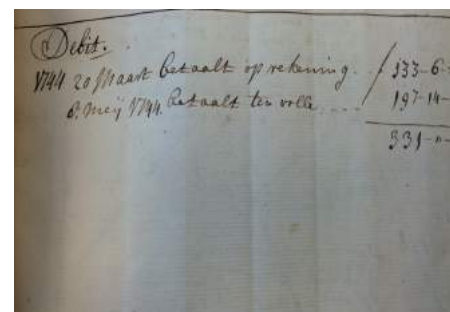 Debit.
1744 20 Maart betaalt op rekening. 133-6-
8. Meij 1744. betaalt ten volle. 197-14-
331-"-